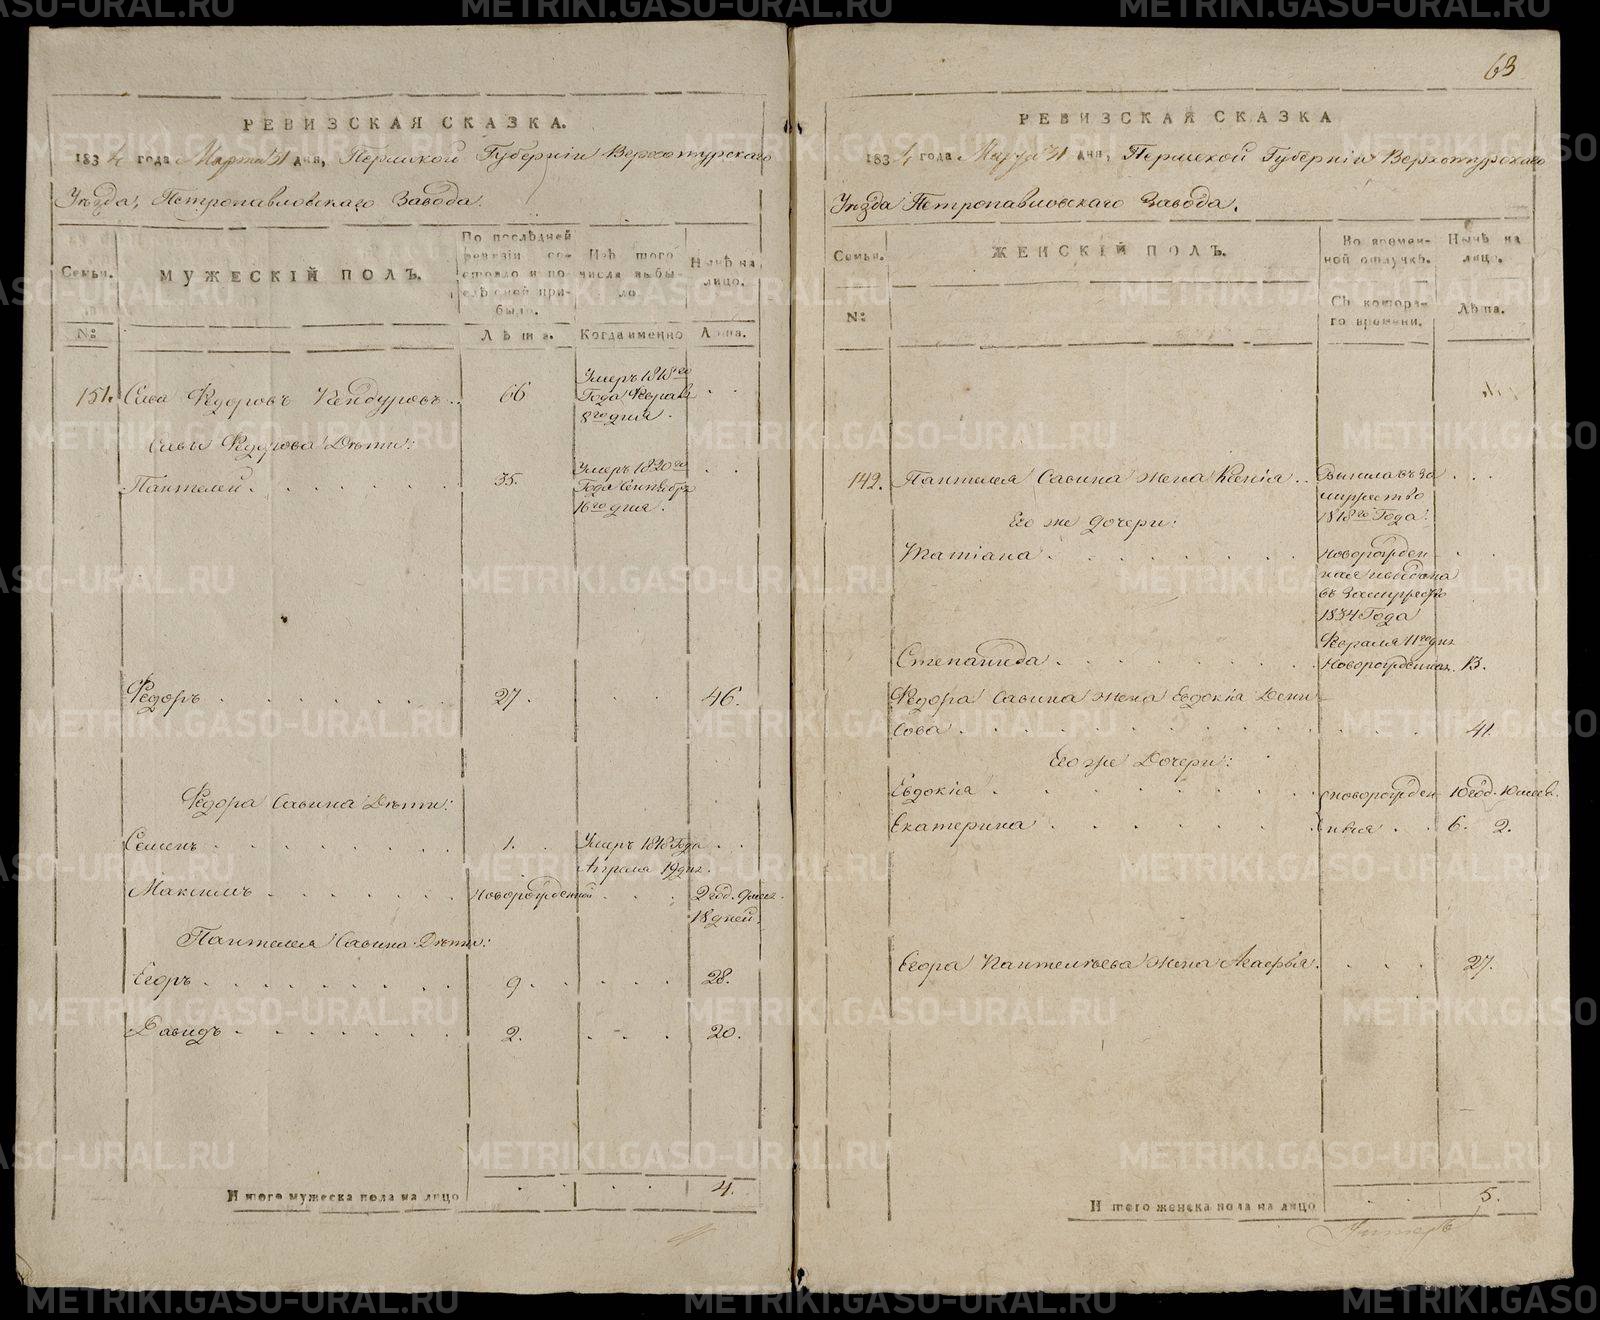 63
РЕВИЗСКАЯ СКАЗКА.
1834 года Марта 31 дня, Пермской Губернiи Верхотурскаго
Уѣзда, Петропавловскаго Завода.
Семьи.
МУЖЕСКIЙ ПОЛЪ.
По послѣдней ревизiи состояло и послѣ оной прибыло.
Изъ того числа выбыло
Нынѣ на лицо.
№:
Лѣта.
Когда именно
Лѣта.
151. Сава Ѳедоровъ Кендуровъ .. 66 Умеръ 1818го
Года Феврал.
8го дня.
Савы Ѳедорова Дѣти:
Пантелей . . . . . . . 35. Умеръ 1820го
Года Сентябр.
16го дня.
Ѳедоръ . . . . . . . 27. . . 46.
Ѳедора Савина Дѣти:
Семенъ . . . . . . . 1. Умеръ 1818 Года
Апреля 19 дня.
Максимъ . . . . . . . Новорожденный . . . 2 год. 9 месяц.
18 дней.
Пантелея Савина Дѣти:
Егоръ . . . . . . . . 9. . . . . 28.
Давидъ . . . . . . . 2. . . . 20.
И того мужеска пола на лицо . . . . 4.
РЕВИЗСКАЯ СКАЗКА
1834 года Марта 31 дня, Пермской Губернiи Верхотурскаго
Уѣзда Петропавловскаго Завода.
Семьи.
ЖЕНСКIЙ ПОЛЪ.
Во временной отлучкѣ.
Нынѣ на лицо.
№:
Съ котораго времени.
Лѣта.
142. Пантелея Савина жена Ксенiя .. Вышла въ за
мужество
1818го Года.
Его же дочери:
Татiана . . . . . . . Новорожден
ная выдана
въ замужество
1834 Года
Февраля 11го дня
Степанида . . . . . . . Новорожденная 13.
Ѳедора Савина жена Евдокiа Дени
сова . . . . . . . 41.
Его же Дочери:
Евдокiа . . . . . . . новорожден 10 год. 10 месяв.
Екатерина . . . . . . . ныя . . 6. 2.
Егора Пантелѣева жена Агафiя . . . . 27.
И того женска пола на лицо . . 5.
METRIKI.GASO-URAL.RU